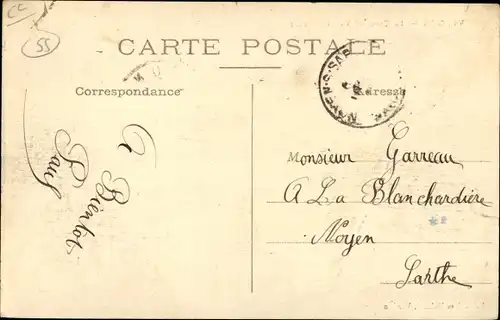 CC
55
CARTE POSTALE
Correspondance
Adresse
A
Bientôt
Monsieur Garreau
A La Blanchardière
Noyen
Sarthe